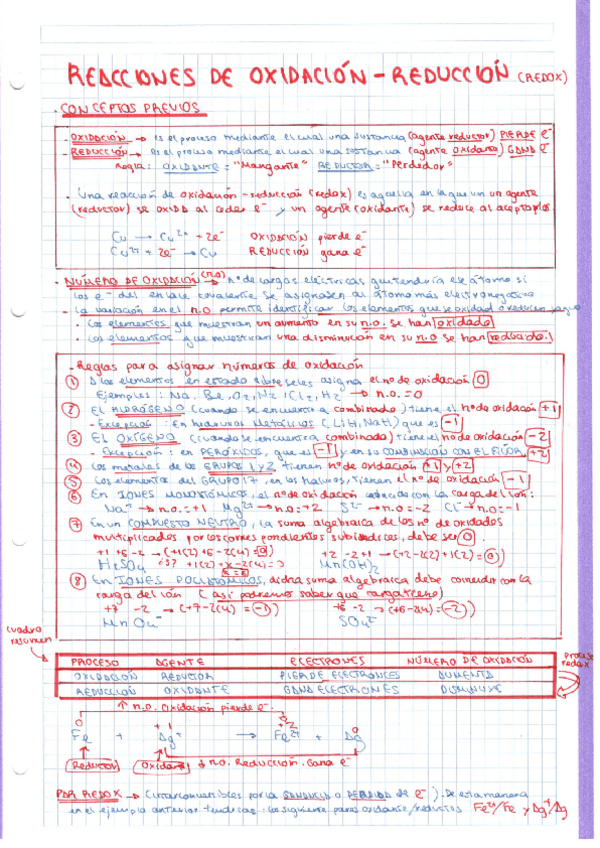 REACCIONES DE OXIDACIÓN - REDUCCIÓN (REDOX)
. CONCEPTOS PREVIOS
- OXIDACIÓN → es el proceso mediante el cual una sustancia (agente reductor) PIERDE e⁻
- REDUCCIÓN → es el proceso mediante el cual una sustancia (agente oxidante) GANA e⁻
Regla: OXIDANTE = "Mangante" REDUCTOR = "Perdedor"
. Una reacción de oxidación - reducción (redox) es aquella en la que un un agente
(reductor) se oxida al ceder e⁻ y un agente (oxidante) se reduce al aceptarlos
Cu → Cu²⁺ + 2e⁻ OXIDACIÓN pierde e⁻
Cu²⁺ + 2e⁻ → Cu REDUCCIÓN gana e⁻
- NÚMERO DE OXIDACIÓN (n.o) → Nº de cargas eléctricas que tendría ese átomo si
los e⁻ del enlace covalente se asignasen al átomo más electronegativo
- La variación en el n.o permite identificar los elementos que se oxidad o reducen
. Los elementos que muestran un aumento en su n.o. se han oxidado
. Los elementos que muestran una disminución en su n.o se han reducido.
. Reglas para asignar números de oxidación
① A los elementos en estado libre se les asigna el nº de oxidación 0
Ejemplos: Na, Be, O₂, N₂, Cl₂, H₂ → n.o. = 0
② El HIDRÓGENO (cuando se encuentra combinado) tiene el nº de oxidación +1
- Excepción: En hidruros metálicos (LiH, NaH) que es -1
③ El OXÍGENO (cuando se encuentra combinado) tiene el nº de oxidación -2
- Excepción: en PERÓXIDOS, que es -1 y en su COMBINACIÓN CON EL FLÚOR +2
④ Los metales de los GRUPOS 1 y 2 tienen nº de oxidación +1 y +2
⑤ Los elementos del GRUPO 17, en los haluros, tienen el nº de oxidación -1
⑥ En IONES MONOATÓMICOS, el nº de oxidación coincide con la carga del ion:
Na⁺ → n.o. = +1 Mg²⁺ → n.o. = +2 S²⁻ → n.o. = -2 Cl⁻ → n.o. = -1
⑦ En un COMPUESTO NEUTRO, la suma algebraica de los nº de oxidados
multiplicados por los correspondientes subíndices, debe ser 0.
+1 +6 -2 → (+1(2)+6-2(4) = 0) +2 -2 +1 → (+2-2(2)+1(2) = 0)
H₂SO₄ Mn(OH)₂
⑧ En IONES POLIATÓMICOS, dicha suma algebraica debe coincidir con la
carga del ion (así podremos saber que carga tiene)
+7 -2 → (+7-2(4) = -1) +6 -2 → (+6-2(4) = -2)
MnO₄⁻ SO₄²⁻
cuadro resumen
PROCESO AGENTE ELECTRONES NÚMERO DE OXIDACIÓN
OXIDACIÓN REDUCTOR PIERDE ELECTRONES AUMENTA
REDUCCIÓN OXIDANTE GANA ELECTRONES DISMINUYE
proceso redox
↑ n.o. Oxidación pierde e⁻
0 +1 +2 0
Fe + Ag⁺ → Fe²⁺ + Ag
Reductor Oxidante ↓ n.o. Reducción. Gana e⁻
PAR REDOX → por la GANANCIA o PÉRDIDA de e⁻). De esta manera
en el ejemplo anterior los siguiente pares oxidante/reductor Fe²⁺/Fe y Ag⁺/Ag